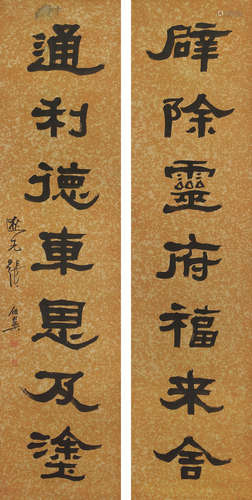 辟除靈府福来舍
通利德車恩及塗